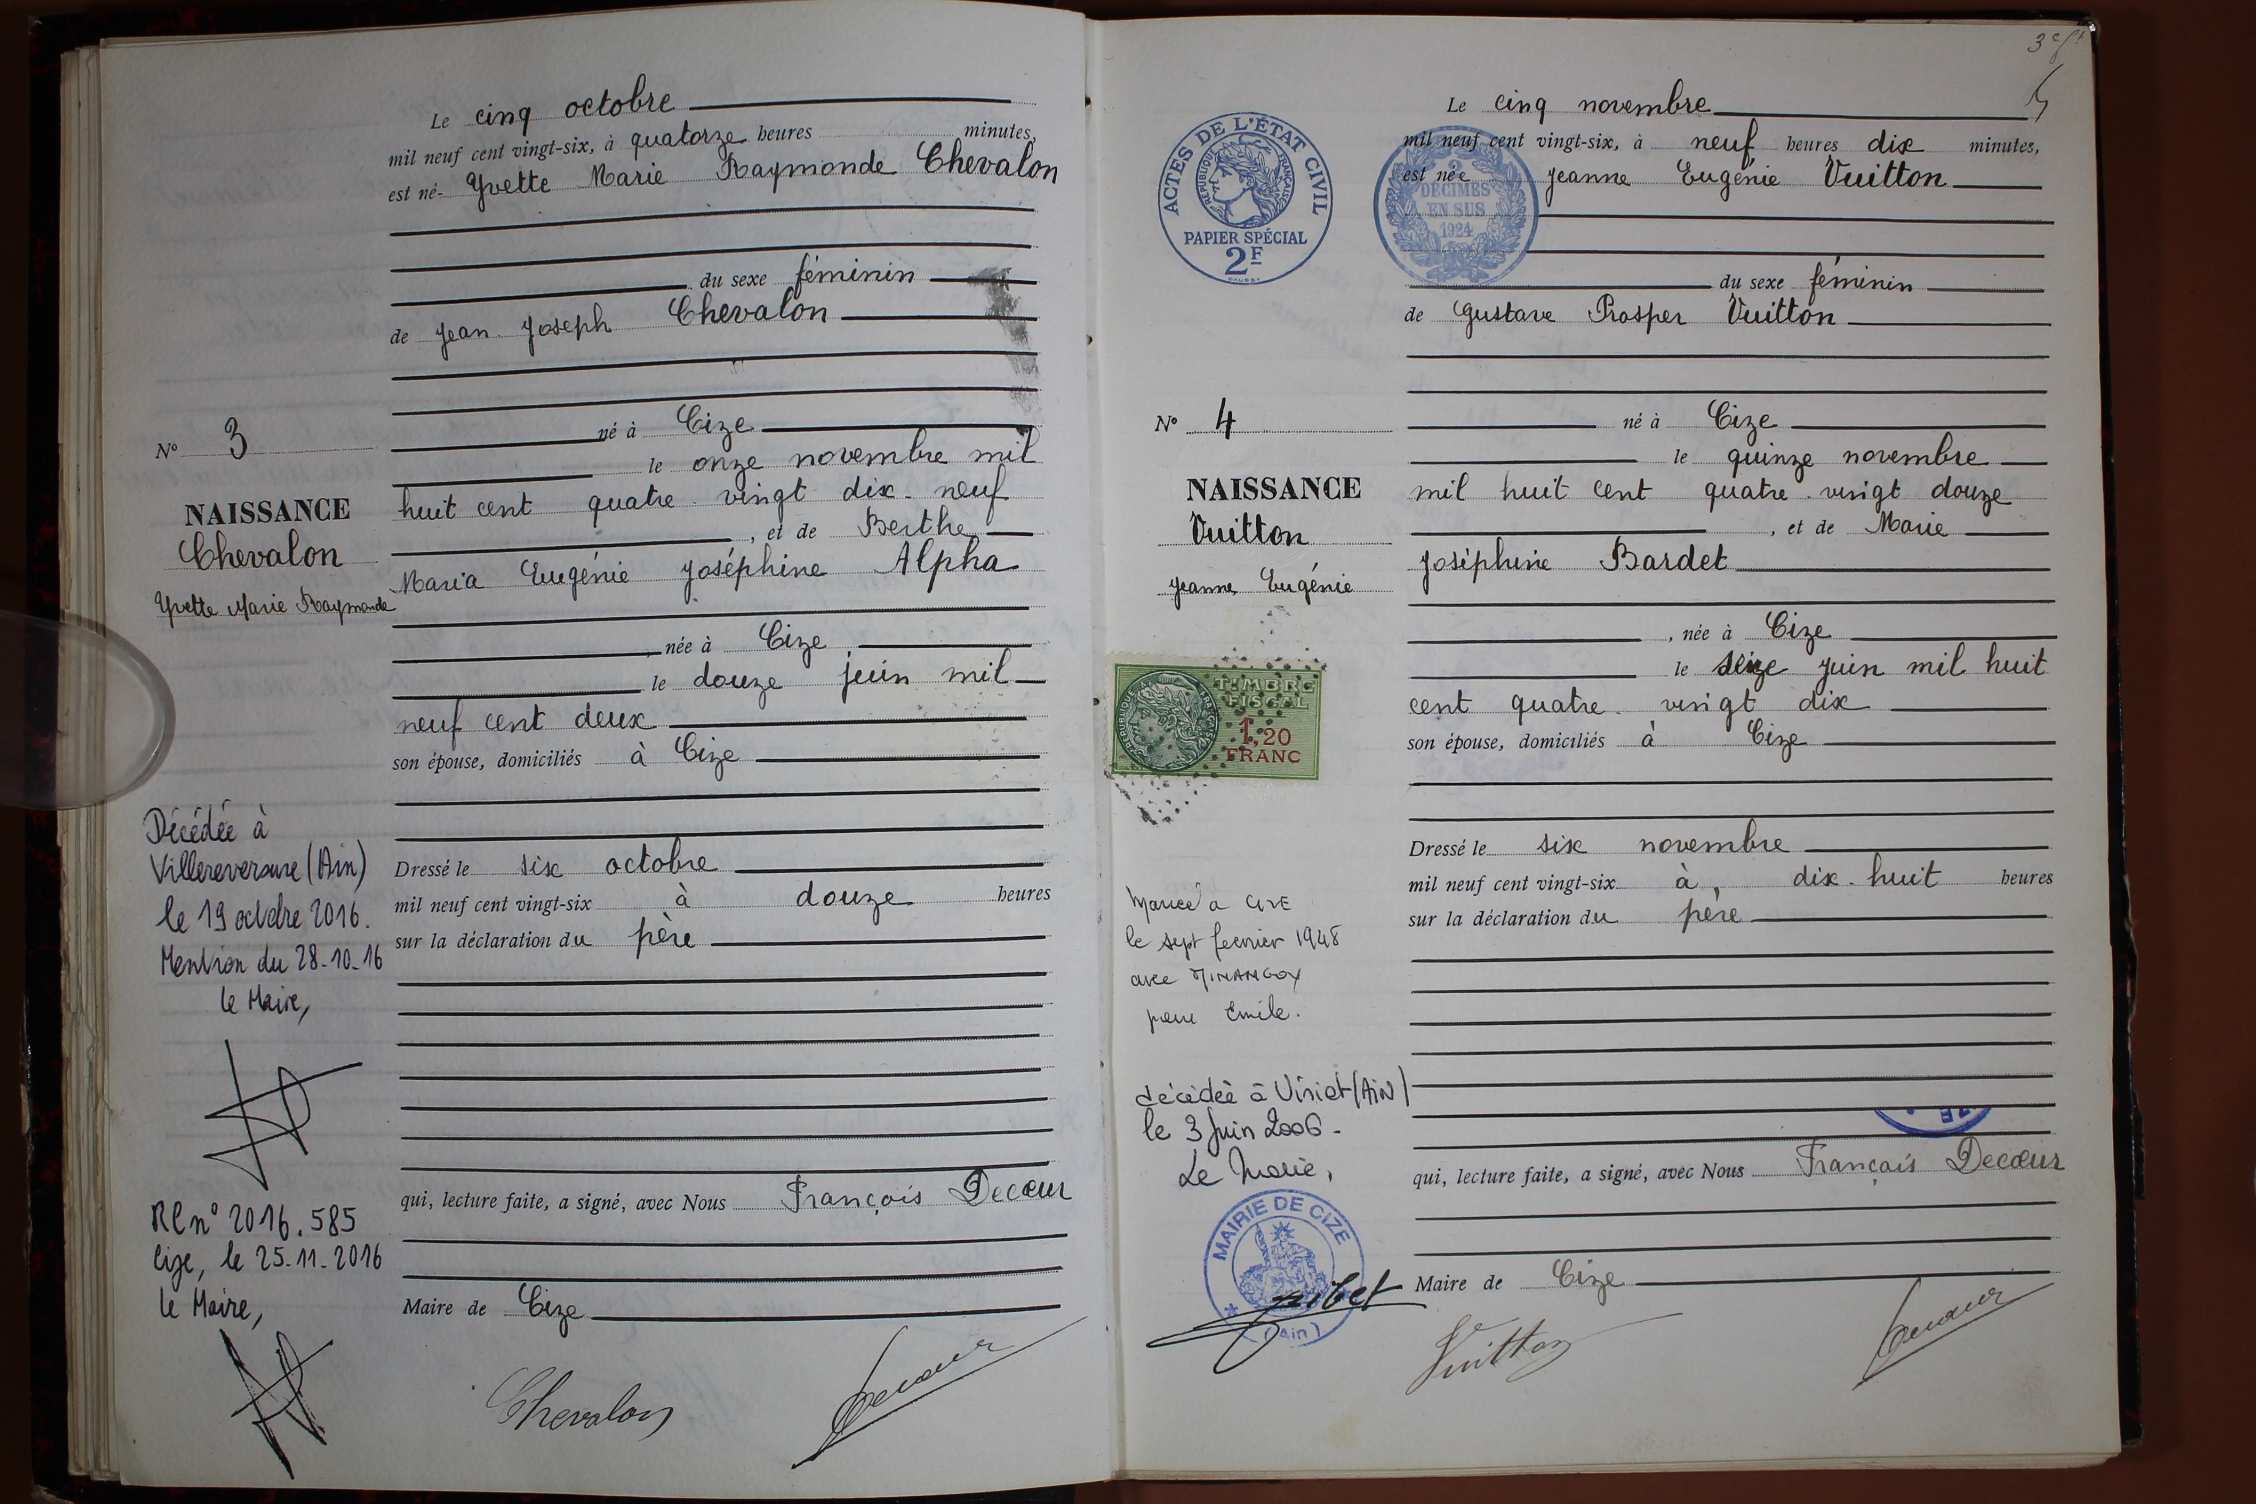 Le cinq octobre
mil neuf cent vingt-six, à quatorze heures minutes,
est né- Yvette Marie Raymonde Chevalon
du sexe féminin
de Jean Joseph Chevalon
né à Cize
le onze novembre mil
huit cent quatre-vingt dix-neuf
, et de Berthe
Maria Eugénie Joséphine Alpha
, née à Cize
le douze juin mil
neuf cent deux
son épouse, domiciliés à Cize
Dressé le six octobre
mil neuf cent vingt-six à douze heures
sur la déclaration du père
qui, lecture faite, a signé, avec Nous François Decœur
Maire de Cize
Chevalon
Decœur
No 3
NAISSANCE
Chevalon
Yvette Marie Raymonde
Décédée à
Villereversure (Ain)
le 19 octobre 2016.
Mention du 28-10-16
le Maire,
RC n° 2016.585
Cize, le 25-11-2016
le Maire,
Le cinq novembre
mil neuf cent vingt-six, à neuf heures dix minutes,
est née Jeanne Eugénie Vuitton
du sexe féminin
de Gustave Prosper Vuitton
né à Cize
le quinze novembre
mil huit cent quatre-vingt douze
, et de Marie
Joséphine Bardet
, née à Cize
le seize juin mil huit
cent quatre-vingt dix
son épouse, domiciliés à Cize
Dressé le six novembre
mil neuf cent vingt-six à, dix-huit heures
sur la déclaration du père
qui, lecture faite, a signé, avec Nous François Decœur
Maire de Cize
Vuitton
Decœur
ACTES DE L'ÉTAT CIVIL
RÉPUBLIQUE FRANÇAISE
PAPIER SPÉCIAL
2F
2
DÉCIMES
EN SUS
1924
No 4
NAISSANCE
Vuitton
Jeanne Eugénie
TIMBRE
FISCAL
1,20
FRANC
Mariée à CIZE
le sept février 1948
avec MINANGOY
Emile.
décédée à Viriat (Ain)
le 3 Juin 2006-
Le Maire,
MAIRIE DE CIZE
(Ain)